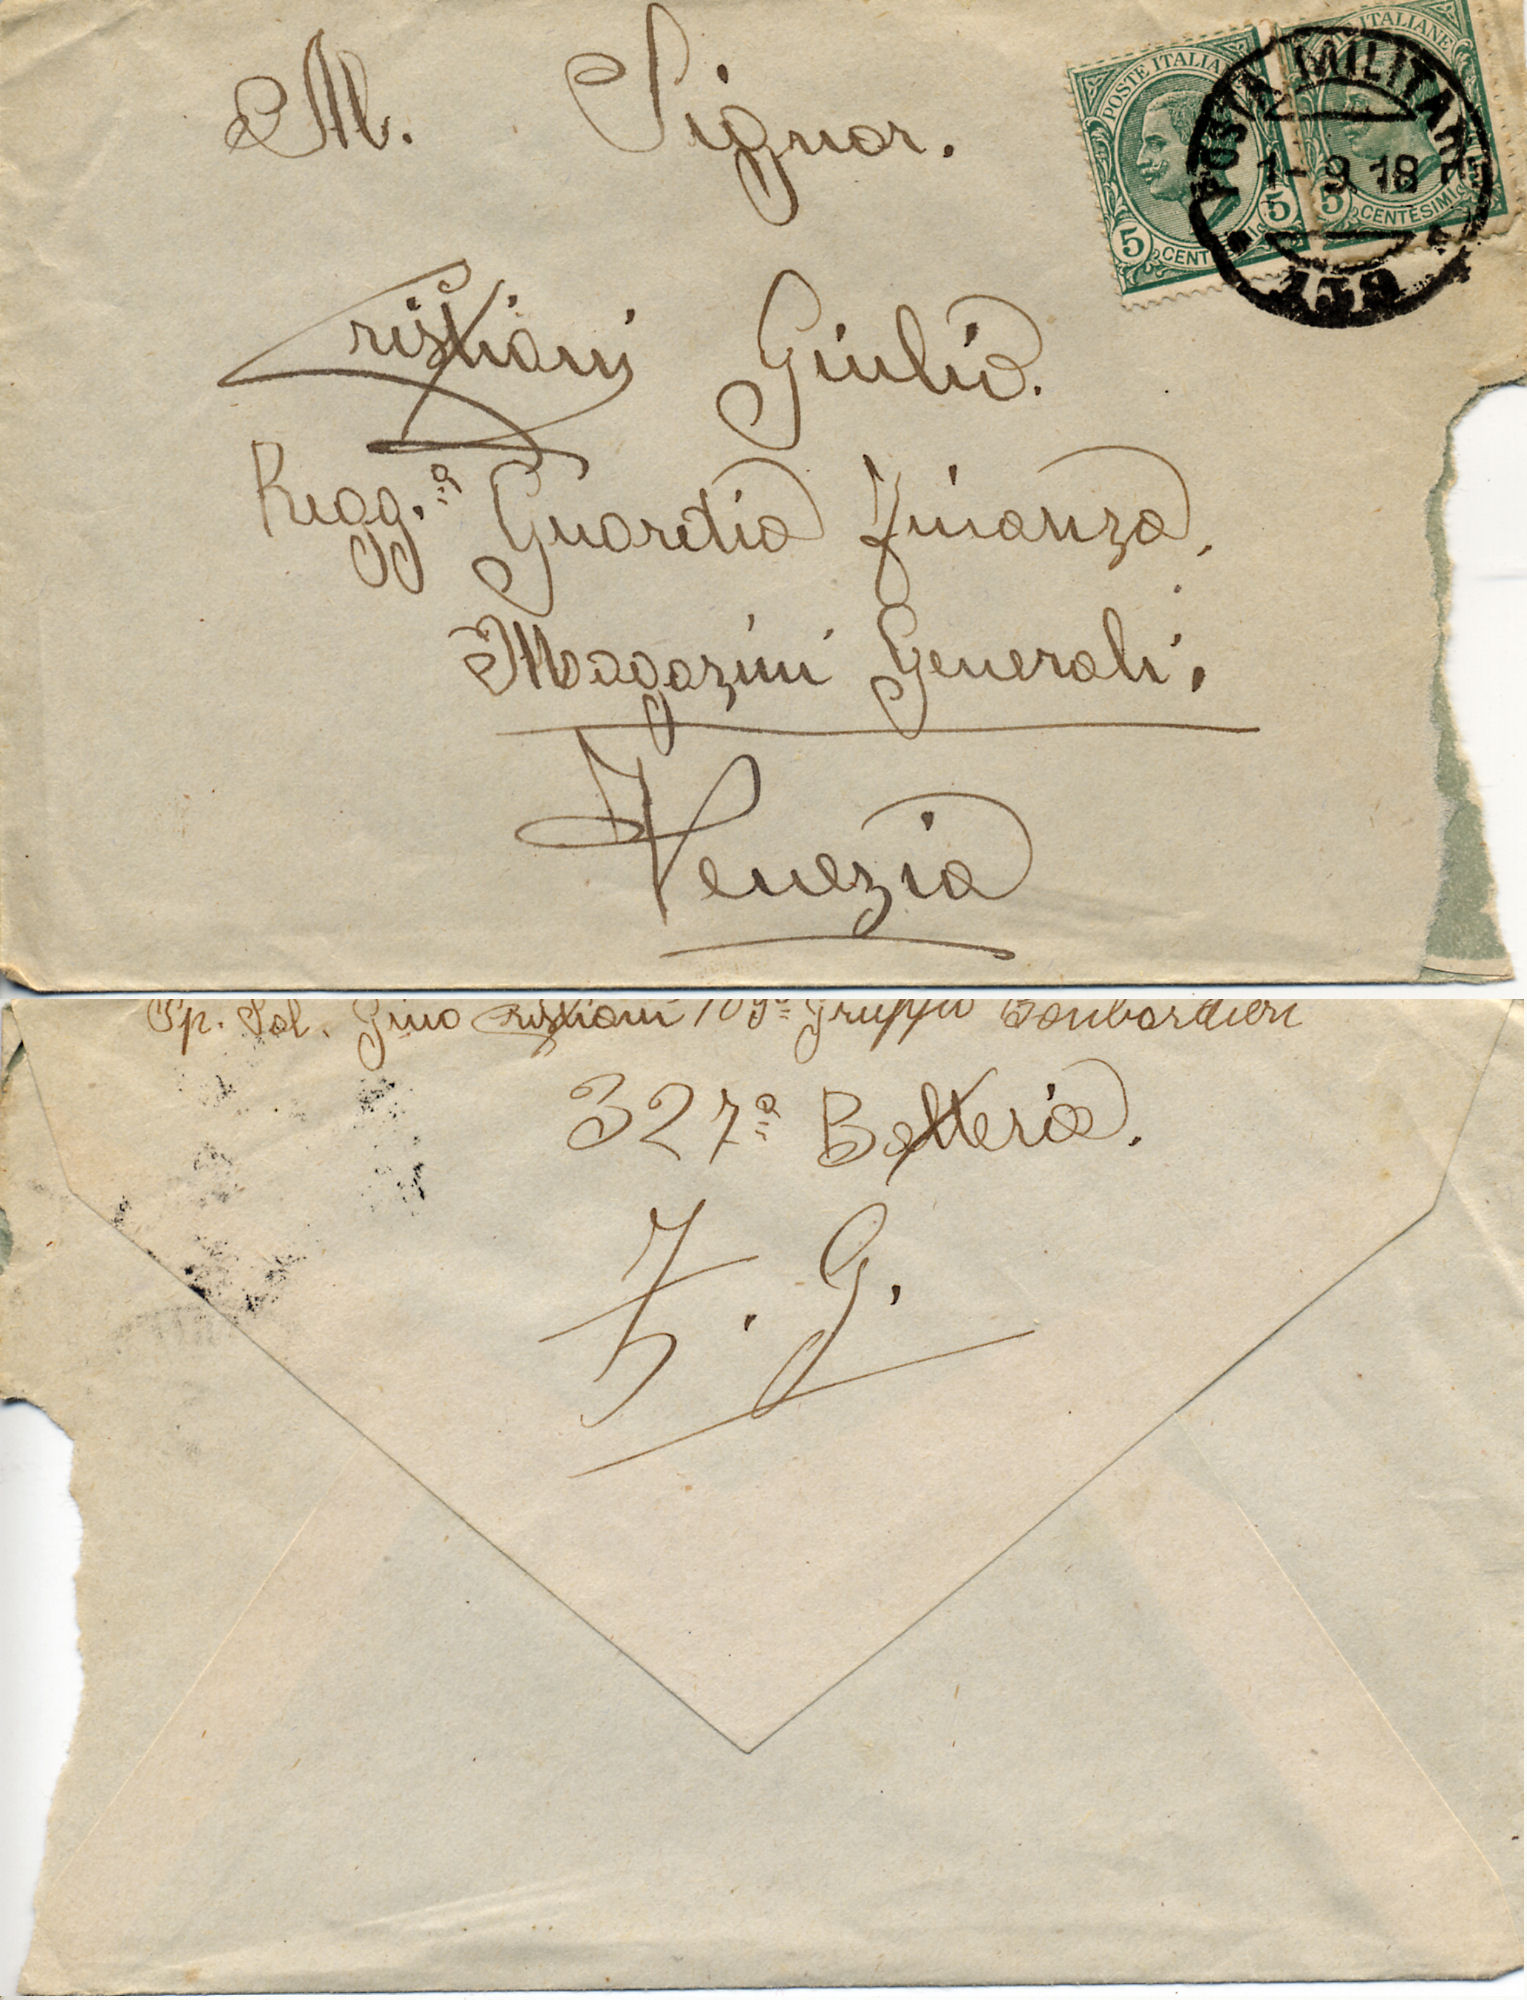 Al. Signor.
POSTE ITALIANE
5 CENTESIMI 5
POSTE ITALIANE
5 CENTESIMI 5
POSTA MILITARE
1-9 18
139
Cristiani Giulio.
Regg.ª Guardia Finanza.
Magazini Generali.
Venezia
Sp. Sol. Gino Cristiani 109º Gruppo Bombardieri
327ª Batteria.
Z. G.